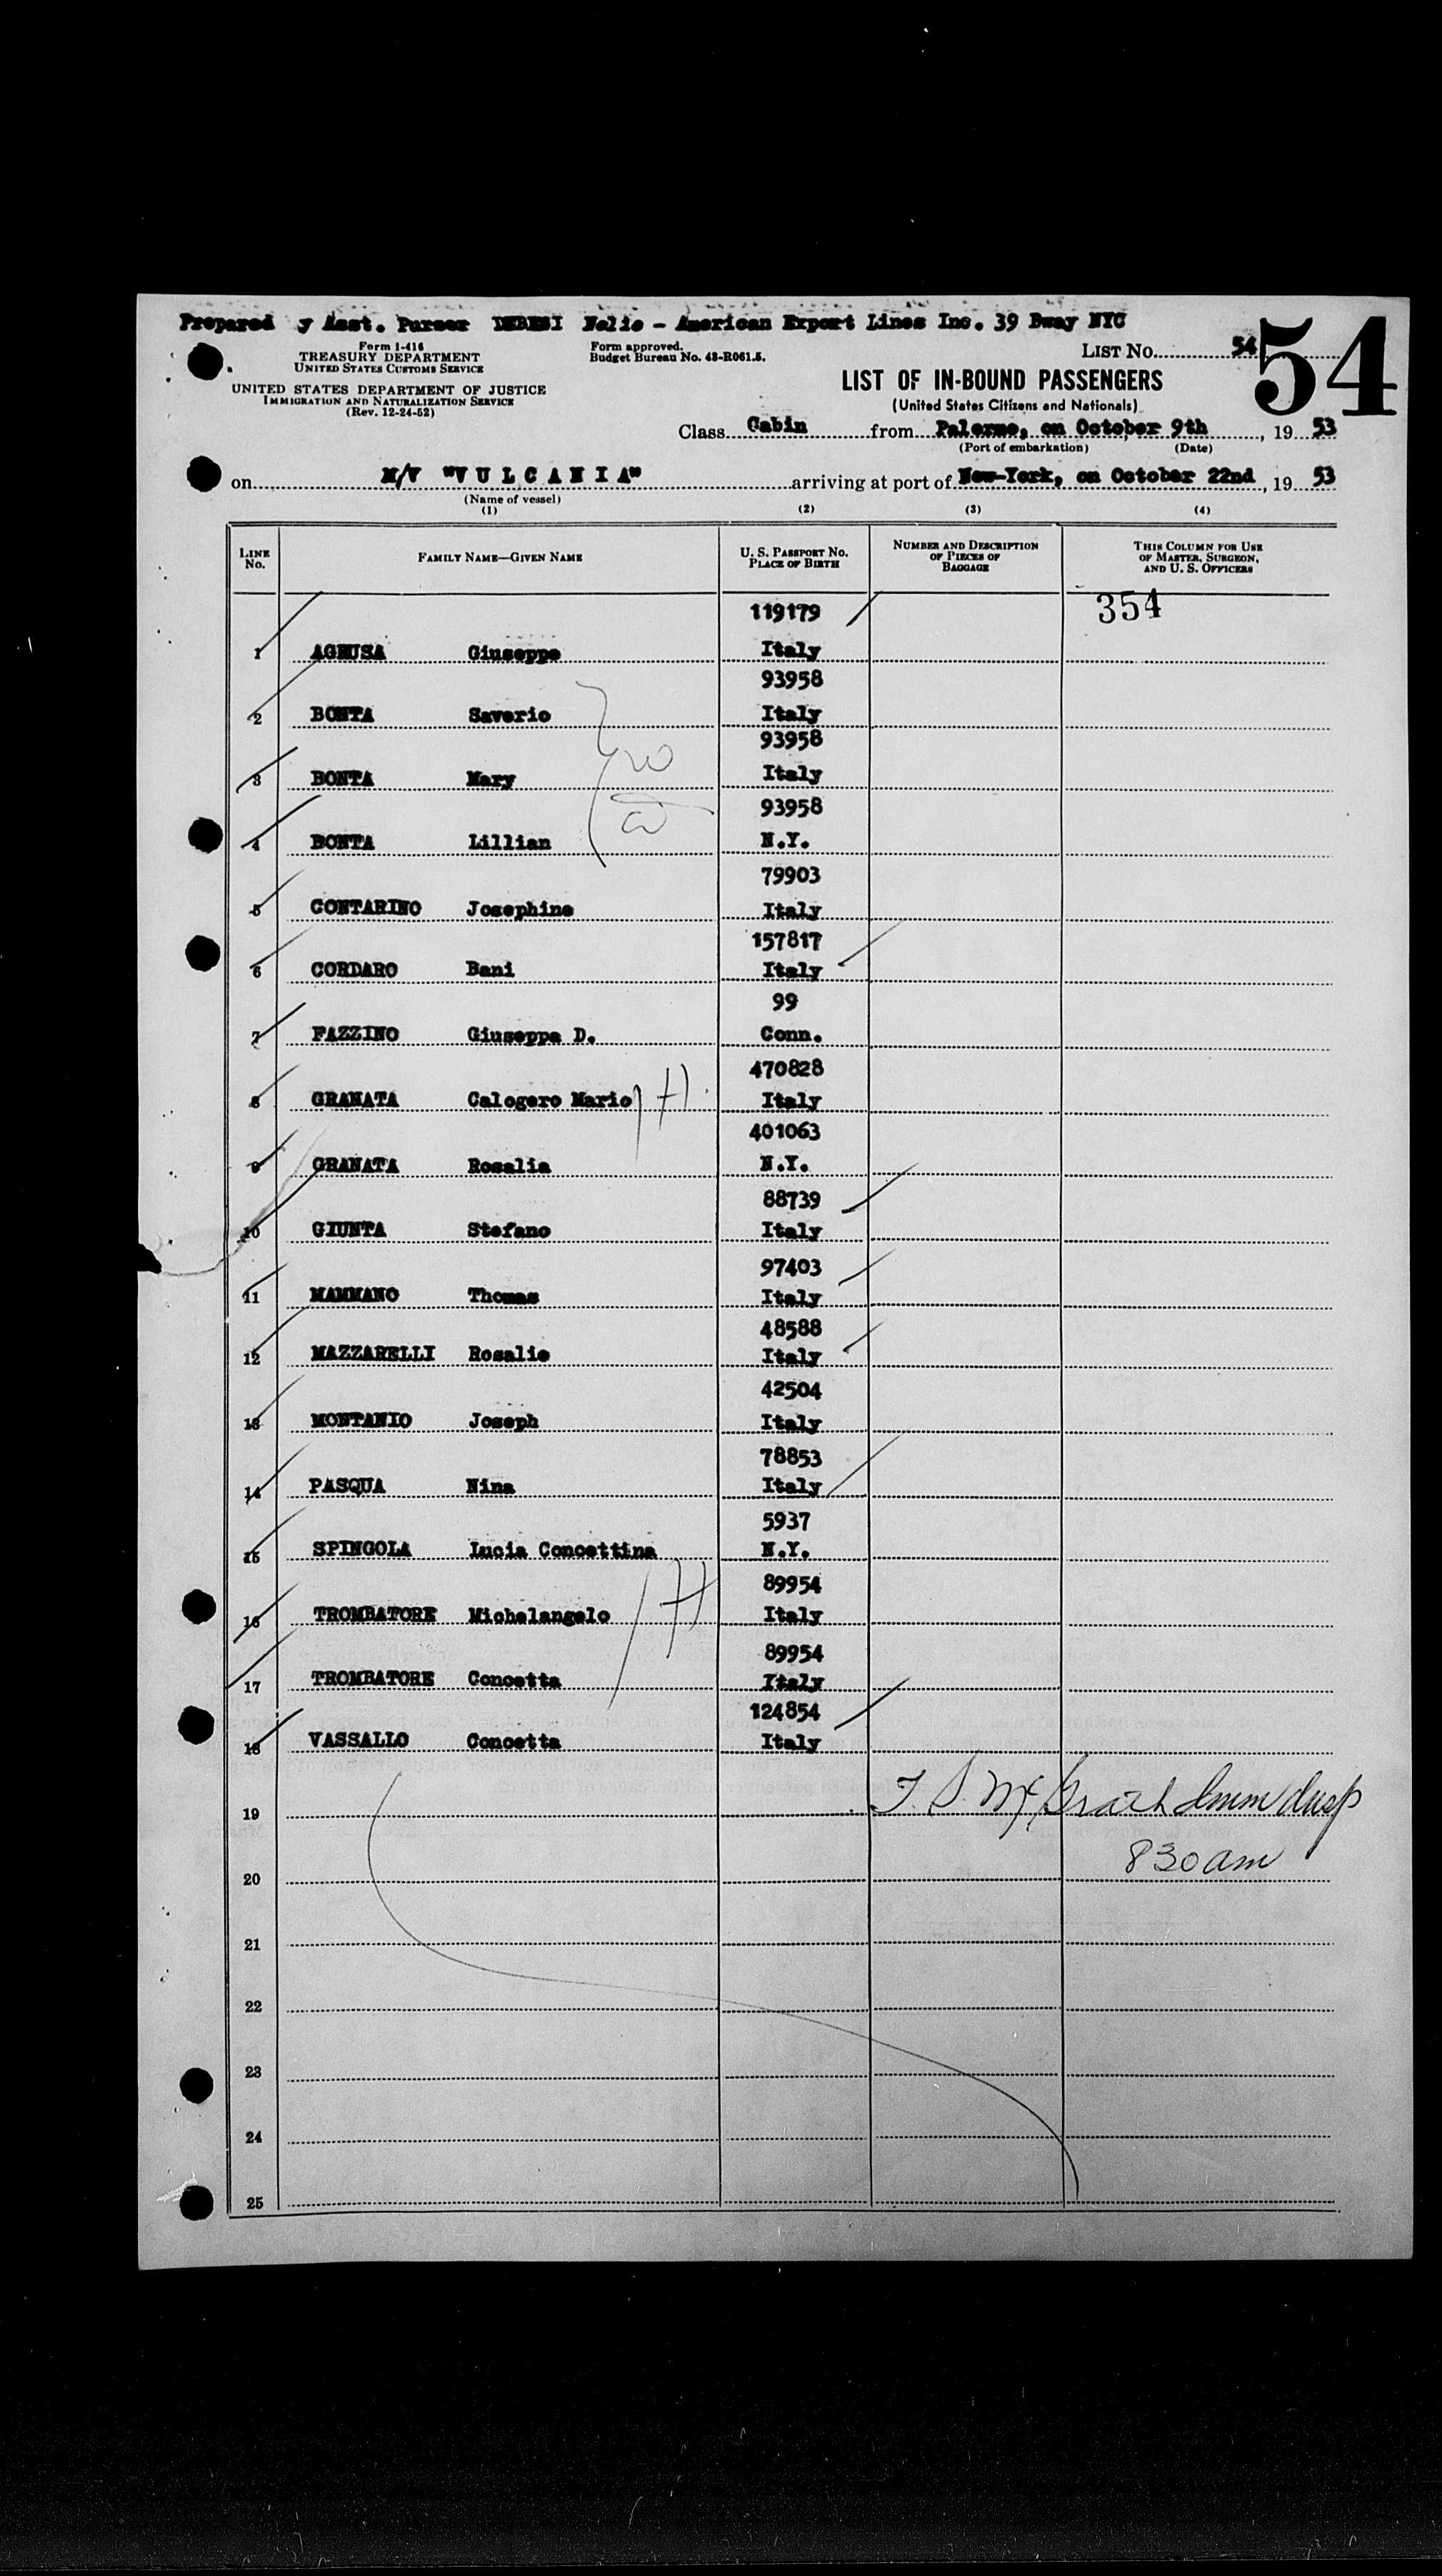 Prepared y Asst. Purser DEBESI Nelio - American Export Lines Inc. 39 Bway NYC
Form I-416
TREASURY DEPARTMENT
UNITED STATES CUSTOMS SERVICE
UNITED STATES DEPARTMENT OF JUSTICE
IMMIGRATION AND NATURALIZATION SERVICE
(Rev. 12-24-52)
Form approved.
Budget Bureau No. 43-R061.5.
LIST No. 54
54
LIST OF IN-BOUND PASSENGERS
(United States Citizens and Nationals)
Class Cabin from Palermo, on October 9th, 19 53
(Port of embarkation) (Date)
on M/V "VULCANIA" arriving at port of New-York, on October 22nd, 19 53
(Name of vessel)
(1) (2) (3) (4)
LINE No. FAMILY NAME—GIVEN NAME U. S. PASSPORT NO. PLACE OF BIRTH NUMBER AND DESCRIPTION OF PIECES OF BAGGAGE THIS COLUMN FOR USE OF MASTER, SURGEON, AND U. S. OFFICERS
119179 354
1 AGHUSA Giuseppe Italy
93958
2 BONTA Saverio Italy
93958
3 BONTA Mary Italy
93958
4 BONTA Lillian N.Y.
79903
5 CONTARINO Josephine Italy
157817
6 CORDARO Bani Italy
99
7 FAZZINO Giuseppa D. Conn.
470828
8 GRANATA Calogero Mario Italy
401063
9 GRANATA Rosalia N.Y.
88739
10 GIUNTA Stefano Italy
97403
11 MAMMANO Thomas Italy
48588
12 MAZZARELLI Rosalie Italy
42504
13 MONTANIO Joseph Italy
78853
14 PASQUA Nina Italy
5937
15 SPINGOLA Lucia Concettina N.Y.
89954
16 TROMBATORE Michelangelo Italy
89954
17 TROMBATORE Concetta Italy
124854
18 VASSALLO Concetta Italy
19 T. S. McGrath Imm Insp
20 830am
21
22
23
24
25